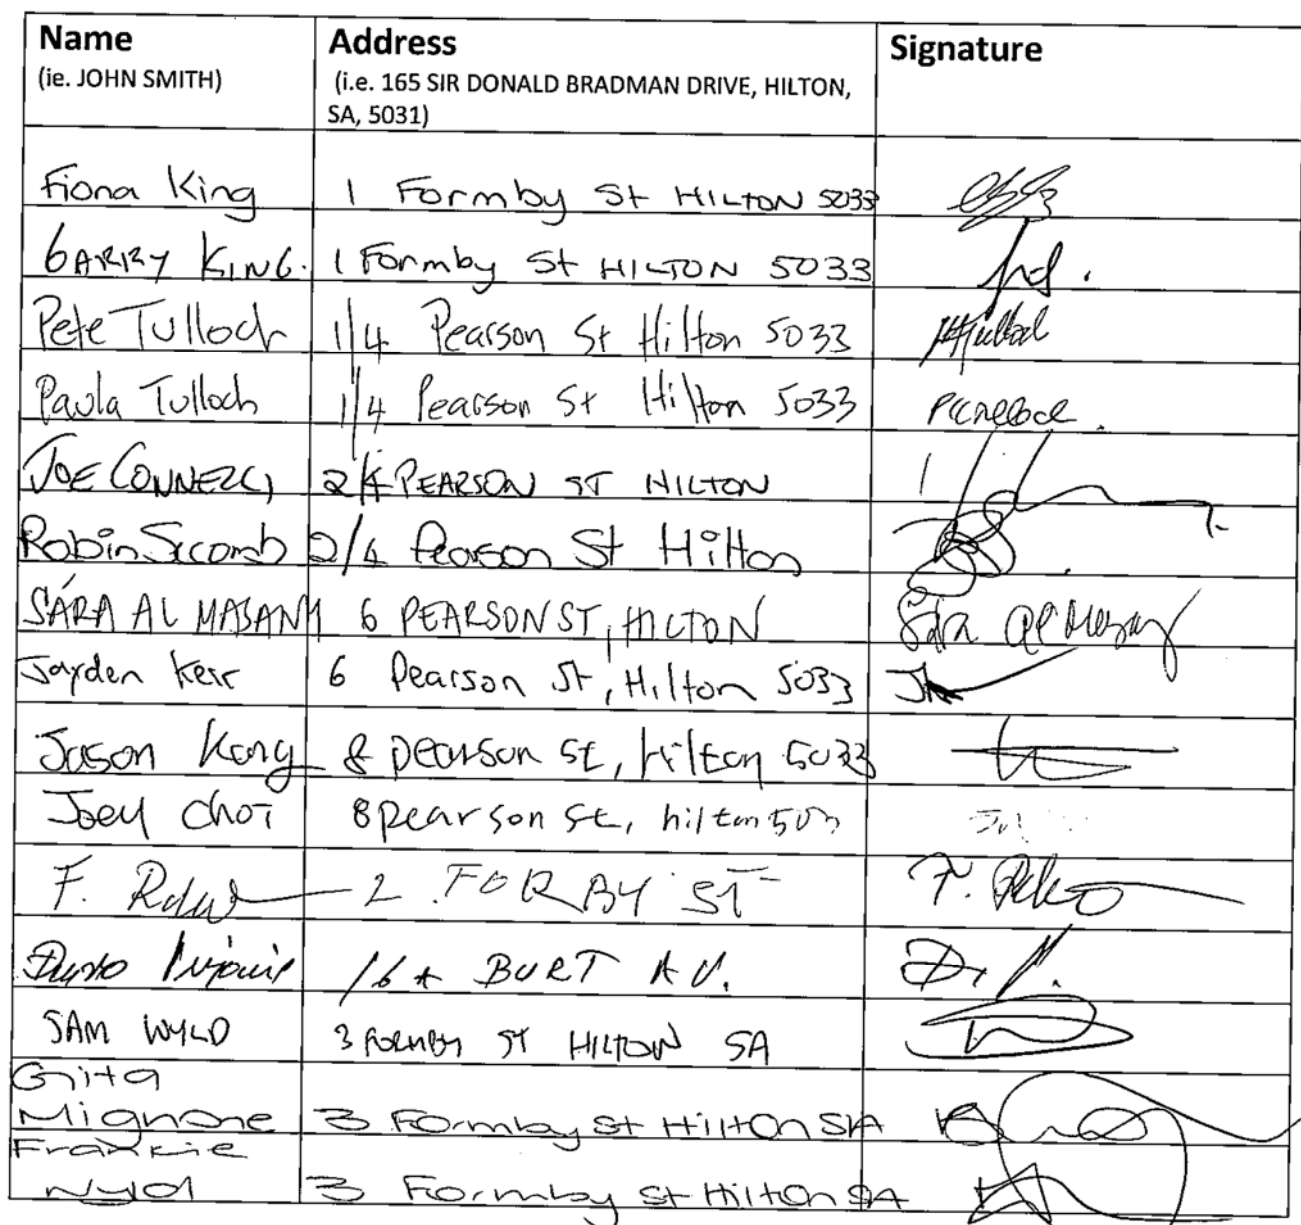 Name Address Signature
(ie. JOHN SMITH) (i.e. 165 SIR DONALD BRADMAN DRIVE, HILTON,
SA, 5031)
Fiona King 1 Formby St HILTON 5033
GARRY KING. 1 Formby St HILTON 5033
Pete Tulloch 1/4 Pearson St Hilton 5033
Paula Tulloch 1/4 Pearson St Hilton 5033
JOE 2/4 PEARSON ST HILTON
Robin Sicomb 2/4 Pearson St Hilton
SARA AL MASANY 6 PEARSON ST, HILTON Sara
Jayden Kerr 6 Pearson St, Hilton 5033
Jason Kang 8 pearson st, hilton 5033
Joey choi 8 pearson st, hilton 503
F. 2 FORBY ST F.
BURT AV.
SAM WYLD 3 FORMBY ST HILTON SA
Gita
Mignone 3 Formby St Hilton SA
Frankie
Wyld 3 Formby St Hilton SA